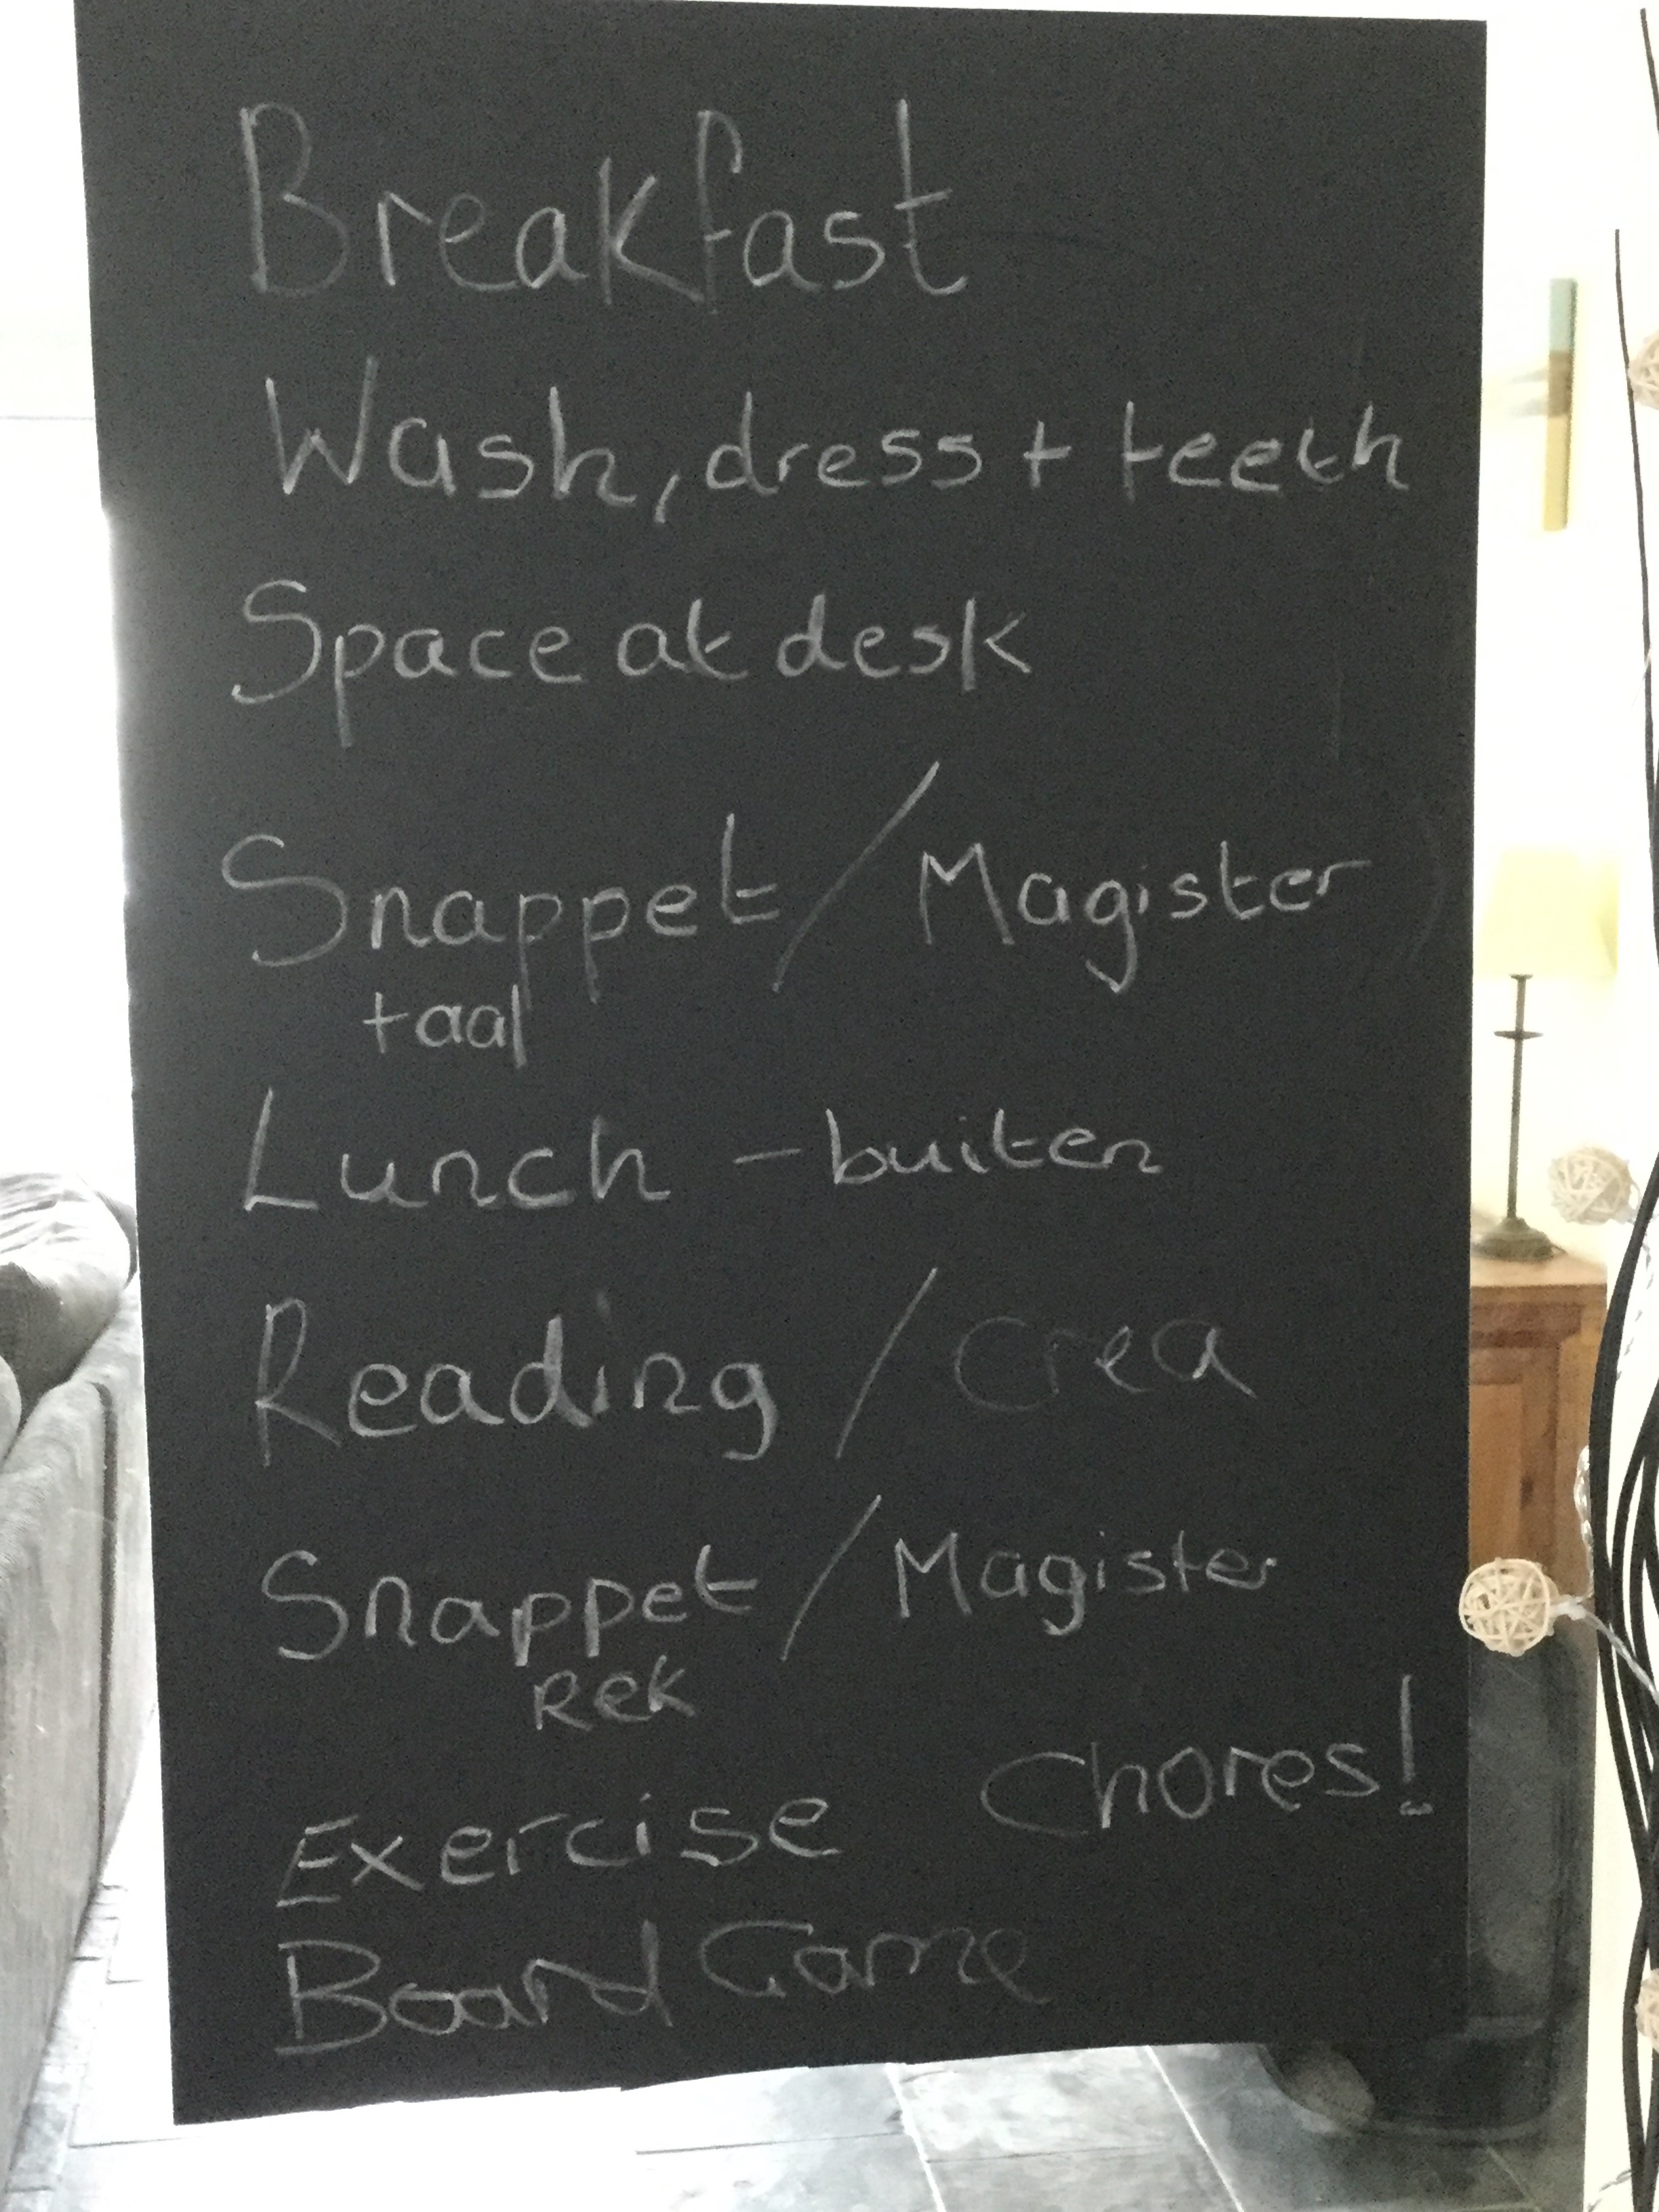 Breakfast
Wash, dress + teeth
Space at desk
Snappet / Magister
taal
Lunch - buiten
Reading / Crea
Snappet / Magister
Rek
Exercise Chores!
Board Game